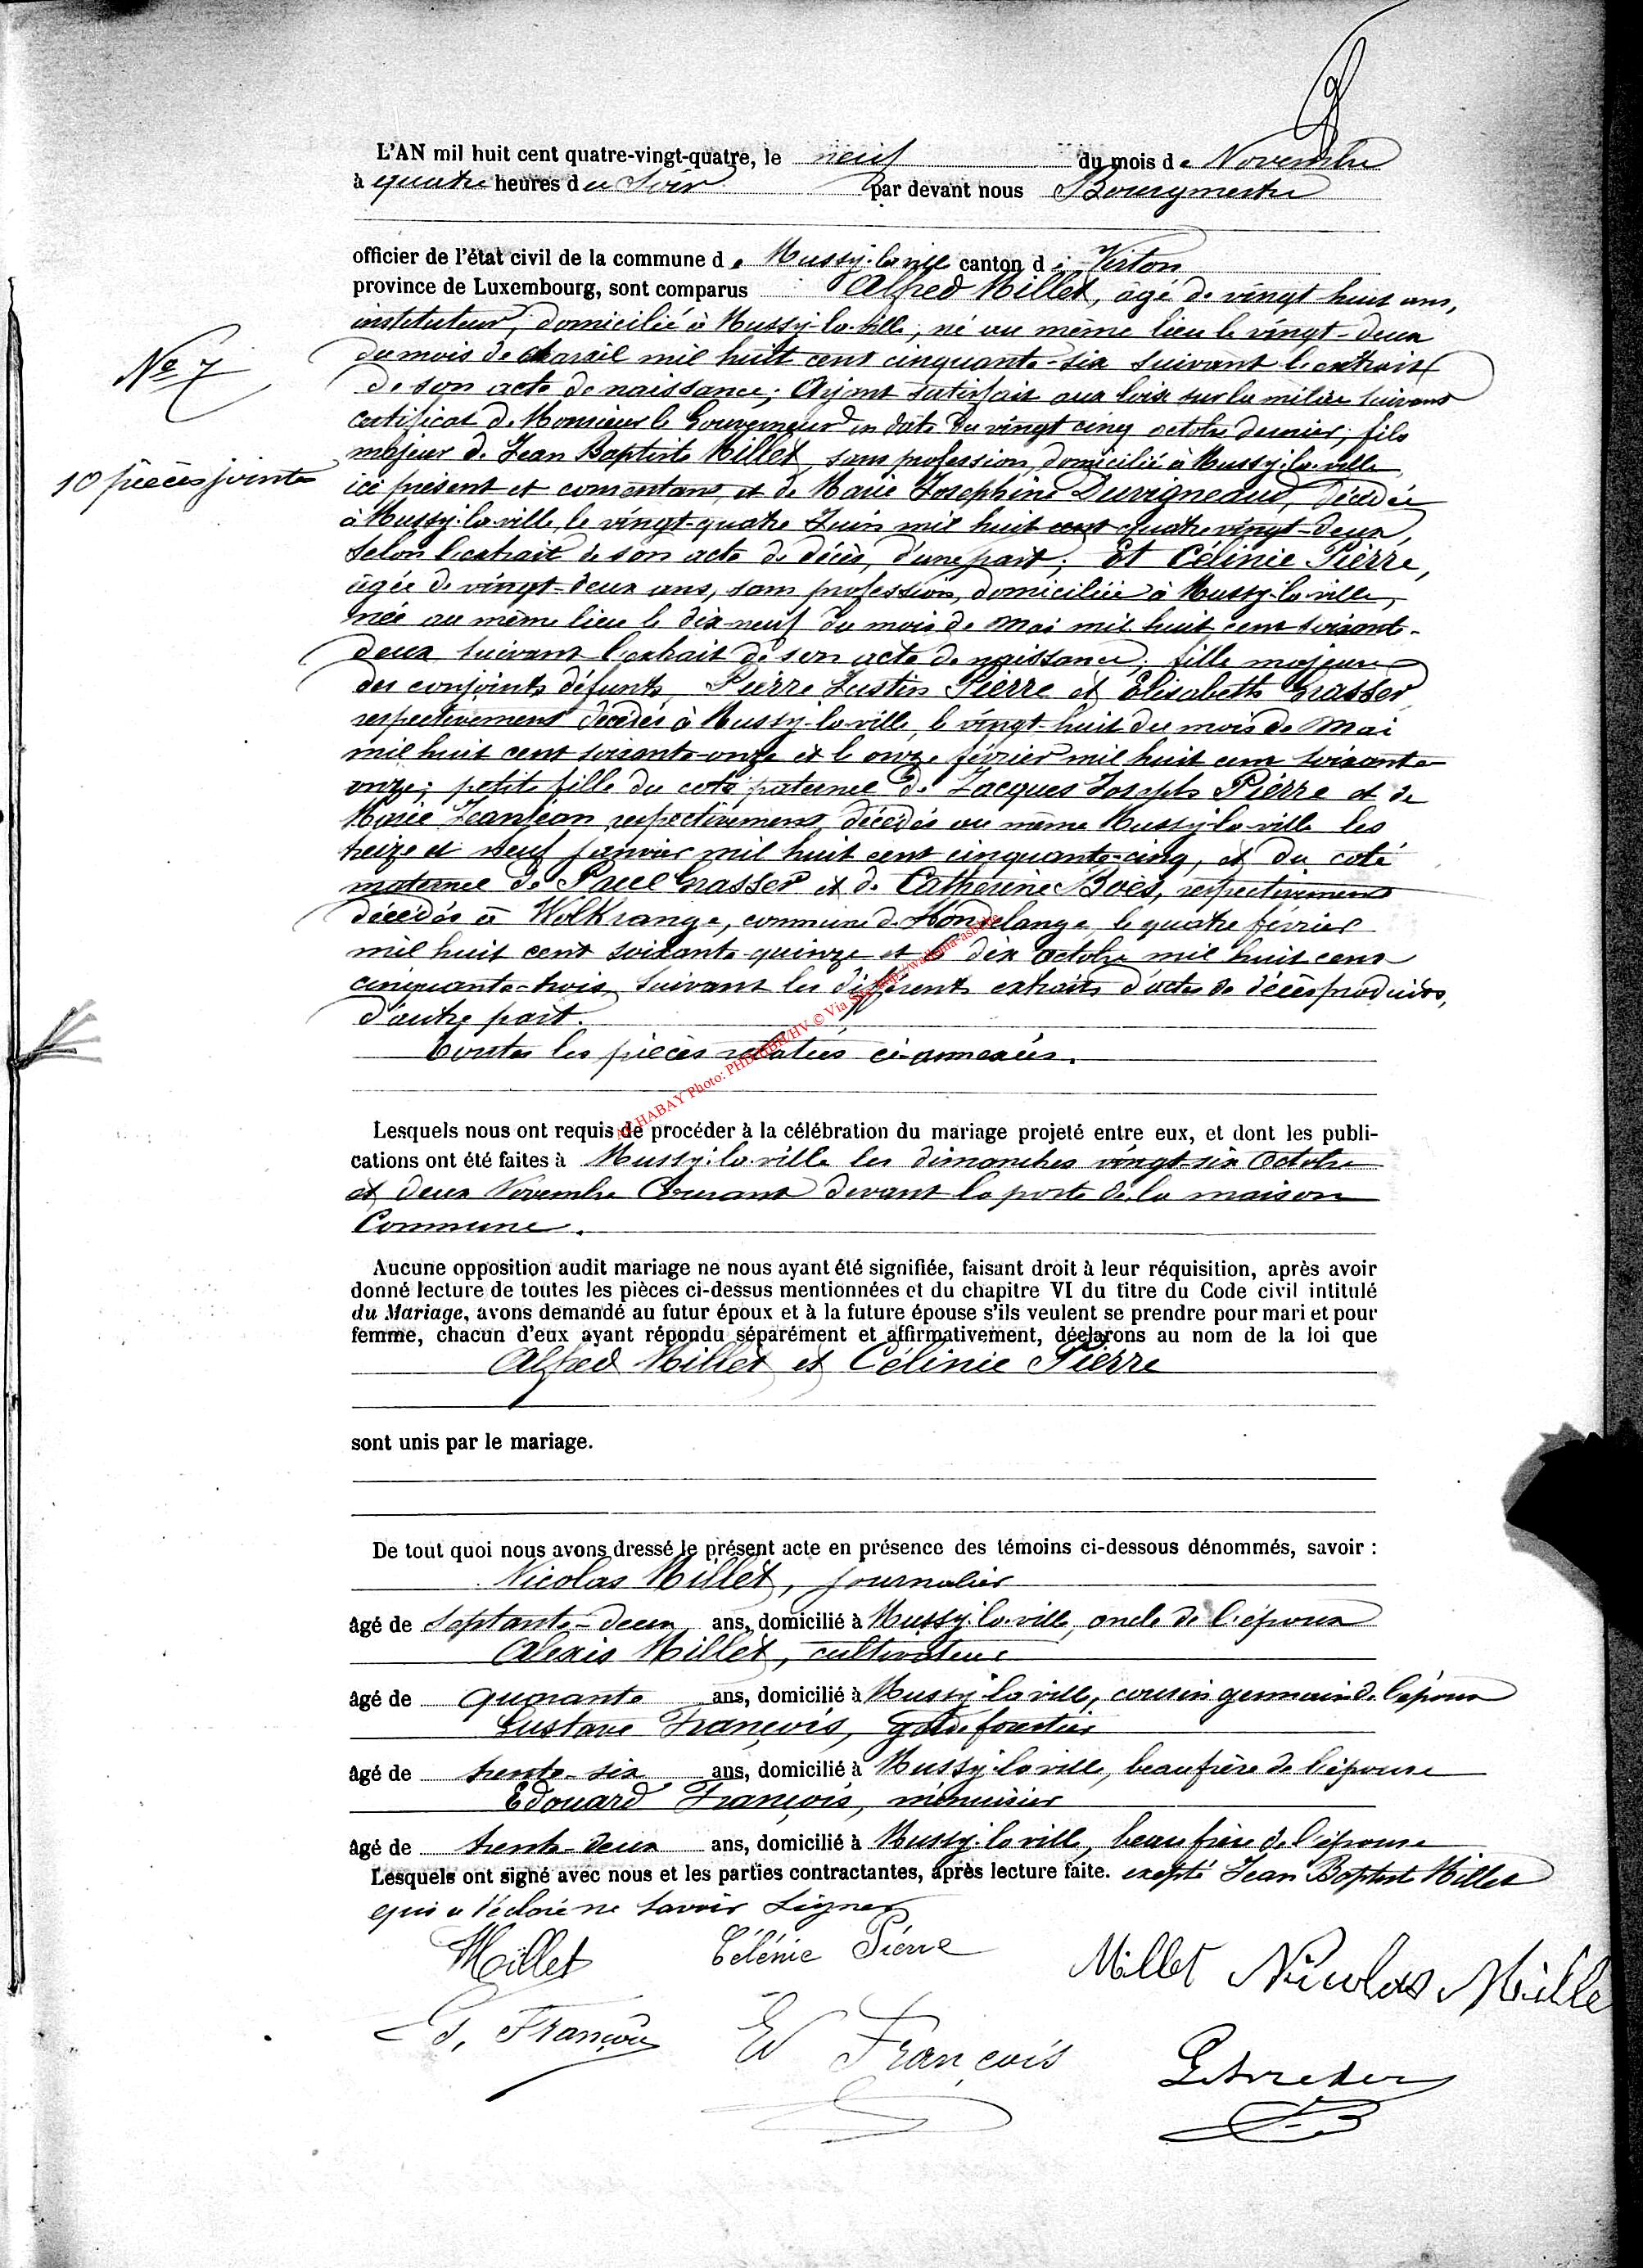 L'AN mil huit cent quatre-vingt-quatre, le neuf du mois de Novembre
à quatre heures du Soir par devant nous Bourgmestre
officier de l'état civil de la commune de Mussy-la-ville canton de Virton
province de Luxembourg, sont comparus Alfred Millet, âgé de vingt huit ans,
instituteur, domicilié à Mussy-la-ville, né au même lieu le vingt-deux
du mois de mil huit cent cinquante-six suivant l'extrait
No 7
de son acte de naissance; Ayant satisfait aux loix sur la milice suivant
certificat de Monsieur le Gouverneur en date du vingt cinq octobre dernier; fils
majeur de Jean Baptiste Millet, sans profession, domicilié à Mussy-la-ville,
10 pièces jointes
ici présent et consentant, et de Marie Josephine Duvigneaud, décédée
à Mussy-la-ville, le vingt-quatre Juin mil huit cent quatre vingt-deux,
selon l'extrait de son acte de décès, d'une part; Et Célinie Pierre,
âgée de vingt-deux ans, sans profession, domiciliée à Mussy-la-ville,
née au même lieu le dix-neuf du mois de Mai mil huit cent soixante-
deux suivant l'extrait de son acte de naissance; fille majeure
des conjoints défunts Pierre Justin Pierre et Elisabeth Grasser
respectivement décédés à Mussy-la-ville, le vingt-huit du mois de Mai
mil huit cent soixante-onze et le onze février mil huit cent soixante
onze; petite fille du coté paternel de Jacques Joseph Pierre et de
Marie Jeanjean respectivement décédés au même Mussy-la-ville les
treize et neuf janvier mil huit cent cinquante-cinq, et du coté
maternel de Paul Grasser et de Catherine Boès, respectivement
décédés à Wolkrange, commune de Hondelange, le quatre février
mil huit cent soixante-quinze et le dix octobre mil huit cent
cinquante-trois, suivant les différents extraits d'actes de décès produits,
d'autre part.
toutes les pièces relatées ci-annexées.
AE HABAY Photo: PHD/HBR/HV © Via Site http://wallonia-asbl.be
Lesquels nous ont requis de procéder à la célébration du mariage projeté entre eux, et dont les publi-
cations ont été faites à Mussy-la-ville les dimanches vingt-six Octobre
et deux Novembre Courant devant la porte de la maison
Commune.
Aucune opposition audit mariage ne nous ayant été signifiée, faisant droit à leur réquisition, après avoir
donné lecture de toutes les pièces ci-dessus mentionnées et du chapitre VI du titre du Code civil intitulé
du Mariage, avons demandé au futur époux et à la future épouse s'ils veulent se prendre pour mari et pour
femme, chacun d'eux ayant répondu séparément et affirmativement, déclarons au nom de la loi que
Alfred Millet et Célinie Pierre
sont unis par le mariage.
De tout quoi nous avons dressé le présent acte en présence des témoins ci-dessous dénommés, savoir :
Nicolas Millet, journalier
âgé de septante-deux ans, domicilié à Mussy-la-ville, oncle de l'époux
Alexis Millet, cultivateur
âgé de quarante ans, domicilié à Mussy-la-ville, cousin germain de l'époux
Gustave François, garde forestier
âgé de trente-six ans, domicilié à Mussy-la-ville, beau frère de l'épouse
Edouard François, menuisier
âgé de trente-deux ans, domicilié à Mussy-la-ville, beau frère de l'épouse
Lesquels ont signé avec nous et les parties contractantes, après lecture faite. excepté Jean Baptiste Millet
qui a déclaré ne savoir Signer
Millet Célénie Piérre Millet Nicolas Mille
G. François Ed François